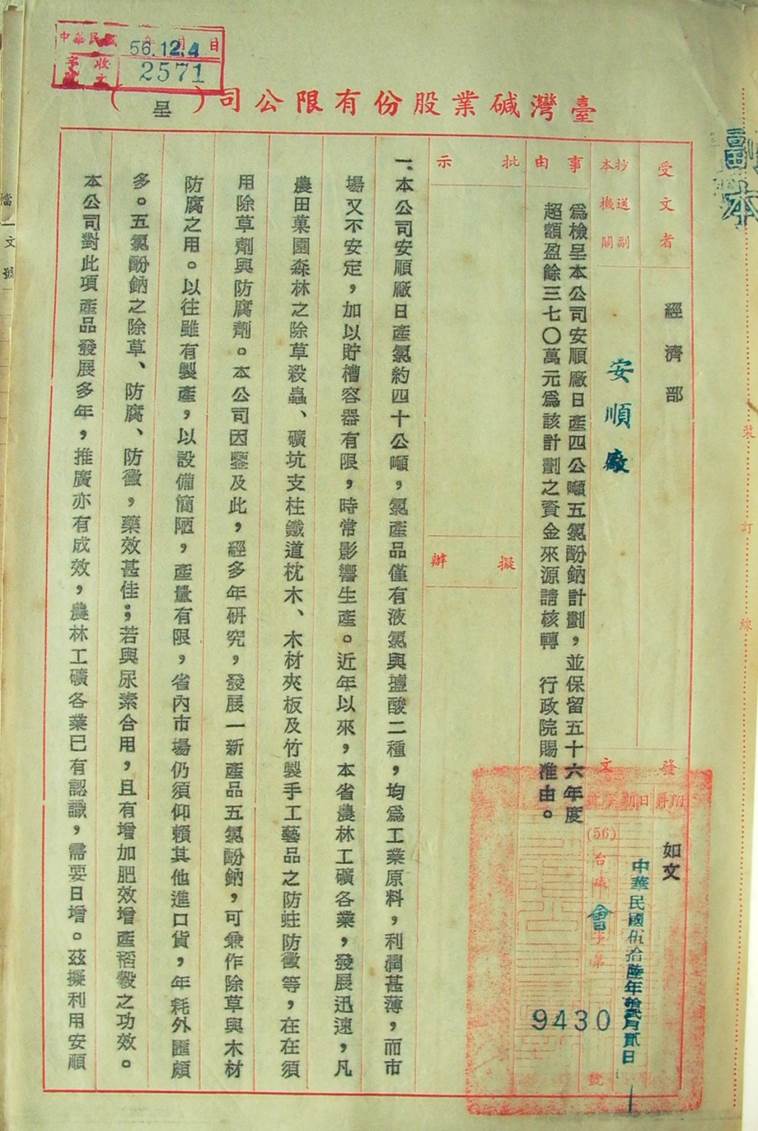 中華民國 年 月 日
56.12.4
收文 字 號
2571
副本
臺灣碱業股份有限公司(呈)
受文者
經濟部
抄送副本機關
安順廠
事由
為檢呈本公司安順廠日產四公噸五氯酚鈉計劃,並保留五十六年度
超額盈餘三七〇萬元為該計劃之資金來源請核轉 行政院賜准由。
發文
附件
日期
字號
如文
中華民國伍拾陸年拾貳月貳日
(56)
台碱
會
字第
9430
號
批示
擬辦
一、本公司安順廠日產氯約四十公噸,氯產品僅有液氯與塩酸二種,均為工業原料,利潤甚薄,而市
場又不安定,加以貯槽容器有限,時常影響生產。近年以來,本省農林工礦各業,發展迅速,凡
農田菓園森林之除草殺蟲、礦坑支柱鐵道枕木、木材夾板及竹製手工藝品之防蛀防黴等,在在須
用除草劑與防腐劑。本公司因鑒及此,經多年研究,發展一新產品五氯酚鈉,可兼作除草與木材
防腐之用。以往雖有製產,以設備簡陋,產量有限,省內市場仍須仰賴其他進口貨,年耗外匯頗
多。五氯酚鈉之除草、防腐、防黴,藥效甚佳;若與尿素合用,且有增加肥效增產稻穀之功效。
本公司對此項產品發展多年,推廣亦有成效,農林工礦各業已有認識,需要日增。茲擬利用安順
裝
訂
線
檔
文號